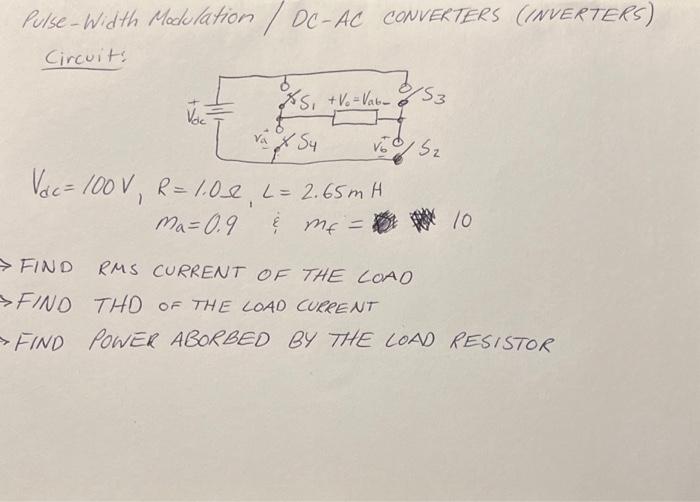 Pulse-Width Modulation / DC-AC CONVERTERS (INVERTERS)
Circuit:
S1 +Vo=Vab- S3
+ Vdc -
+ va - S4 + vb - S2
Vdc = 100 V, R = 1.0 Ω, L = 2.65 m H
ma = 0.9 & mf = 10
→ FIND RMS CURRENT OF THE LOAD
→ FIND THD OF THE LOAD CURRENT
→ FIND POWER ABORBED BY THE LOAD RESISTOR